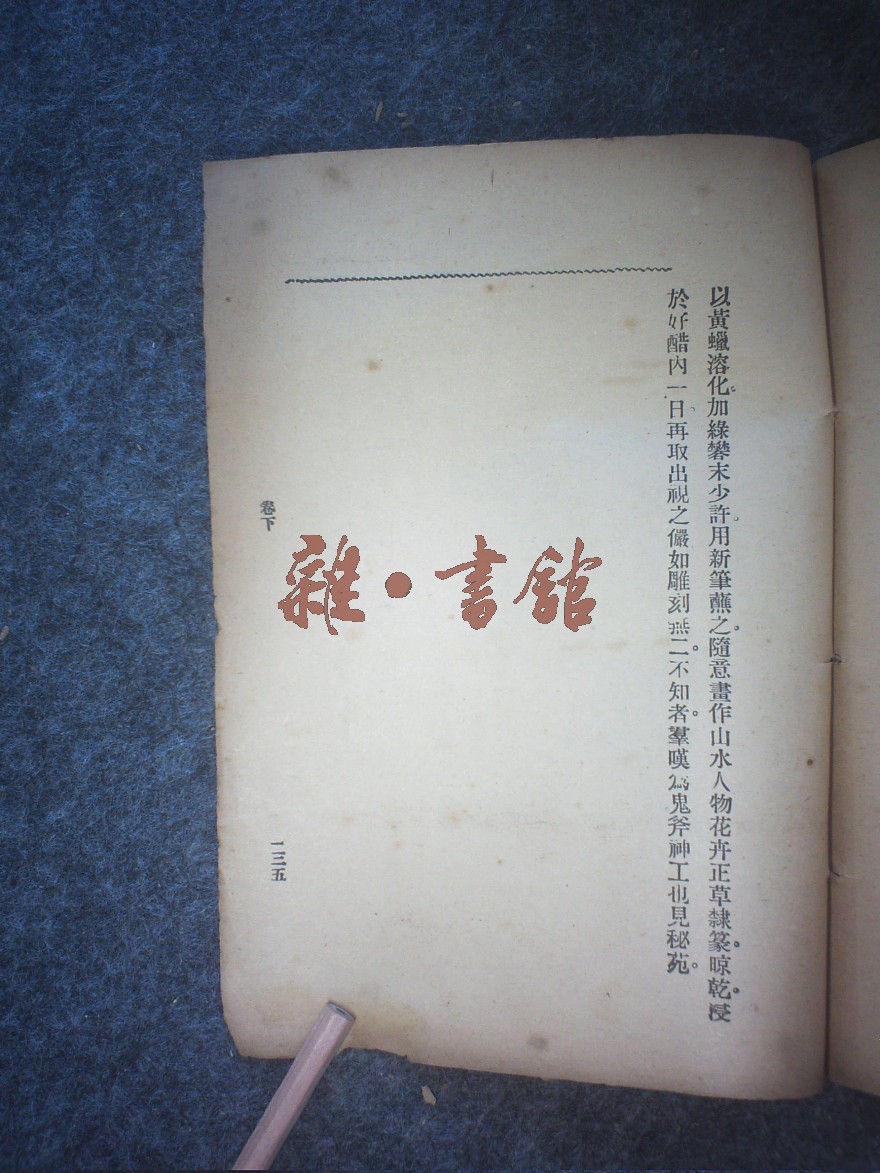 以黃蠟溶化。加綠礬末少許。用新筆蘸之。隨意畫作山水人物花卉正草隸篆。晾乾。浸
於好醋內一日。再取出視之儼如雕刻無二。不知者。羣嘆為鬼斧神工也見秘苑。
卷下
一三五
雜·書館